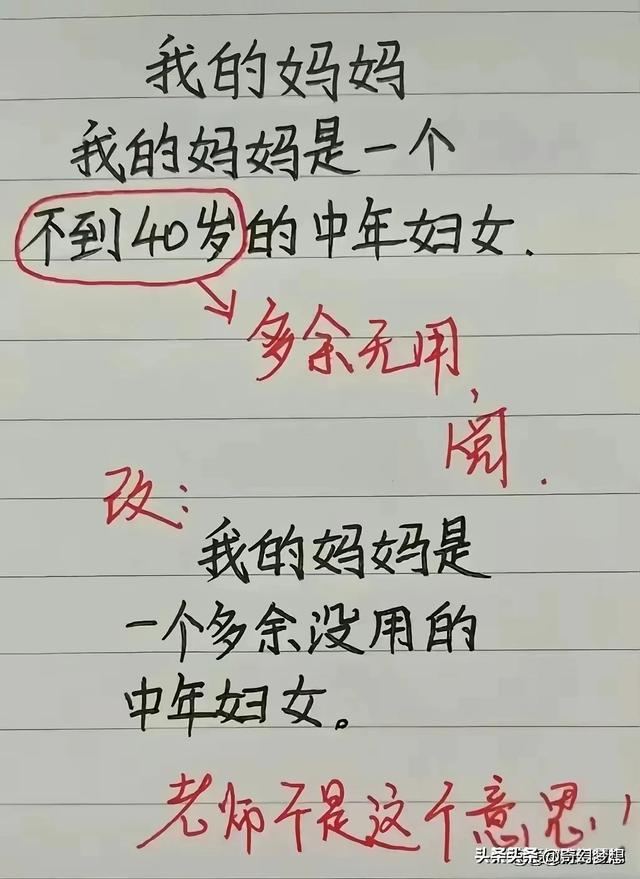 我的妈妈
我的妈妈是一个
不到40岁的中年妇女.
多余无用,
阅.
改:
我的妈妈是
一个多余没用的
中年妇女。
老师不是这个意思!
头条头条@奇幻梦想